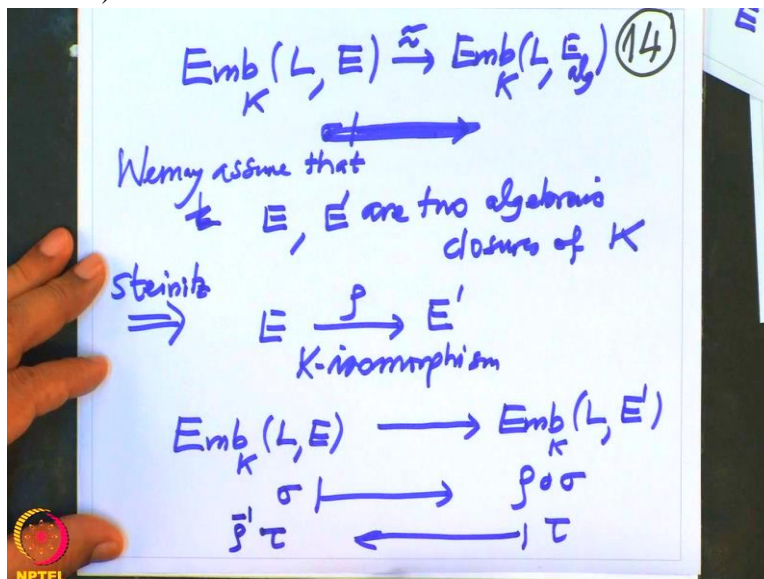 Emb_K (L, E) ⥲ Emb_K (L, E_alg) 14
We may assume that
E, E' are two algebraic
closures of K
Steinitz
⟹ E —ρ→ E'
K-isomorphism
Emb_K (L, E) ⟶ Emb_K (L, E')
σ ⟼ ρ∘σ
ρ⁻¹ τ ⟻ τ
E
NPTEL